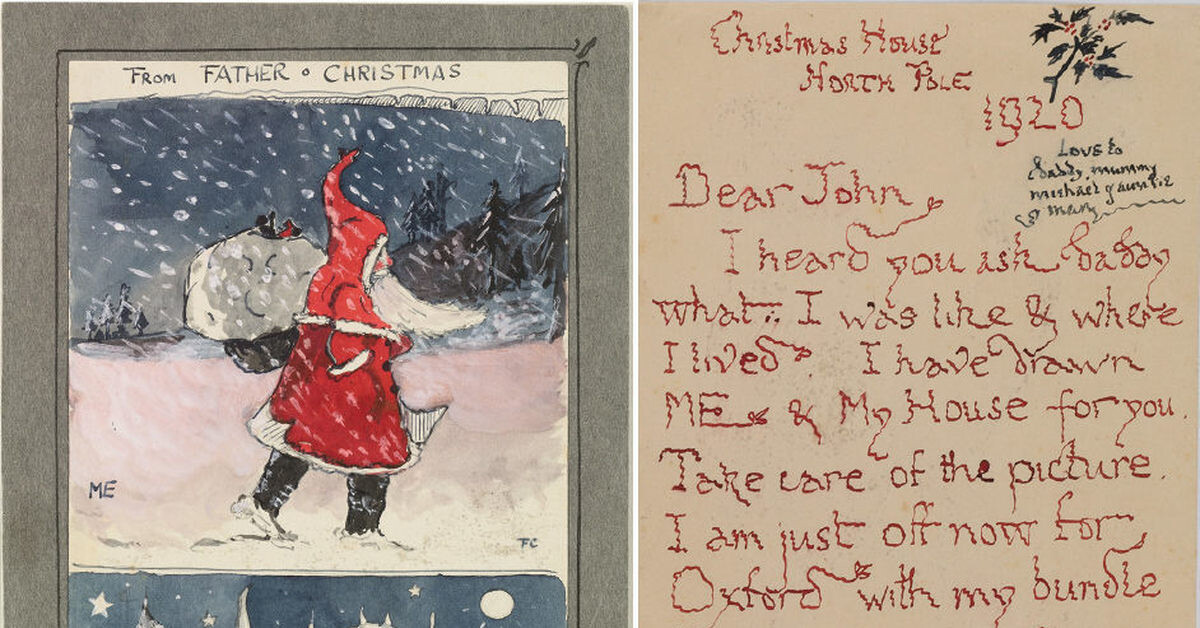 FROM FATHER • CHRISTMAS
ME
FC
Christmas House
NORTH POLE
1920
Love to
daddy, mummy
michael & auntie
& mary
Dear John
I heard you ask daddy
what I was like & where
I lived. I have drawn
ME & My House for you.
Take care of the picture.
I am just off now for
Oxford with my bundle